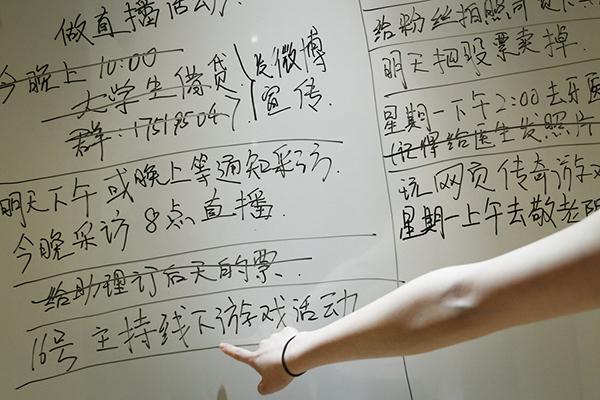 做直播活动.
今晚上10:00
大学生借贷
群:17519504
发微博
宣传.
明天下午或晚上等通知采访.
今晚采访8点直播.
给助理订后天的票.
16号主持线下游戏活动
给粉丝拍照
明天把股票卖掉.
星期一下午2:00去牙医
(记得给医生发照片
玩网页传奇游戏
星期一上午去敬老院